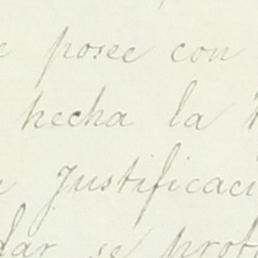 e posee con
hecha la
Justificaci
dar se prot